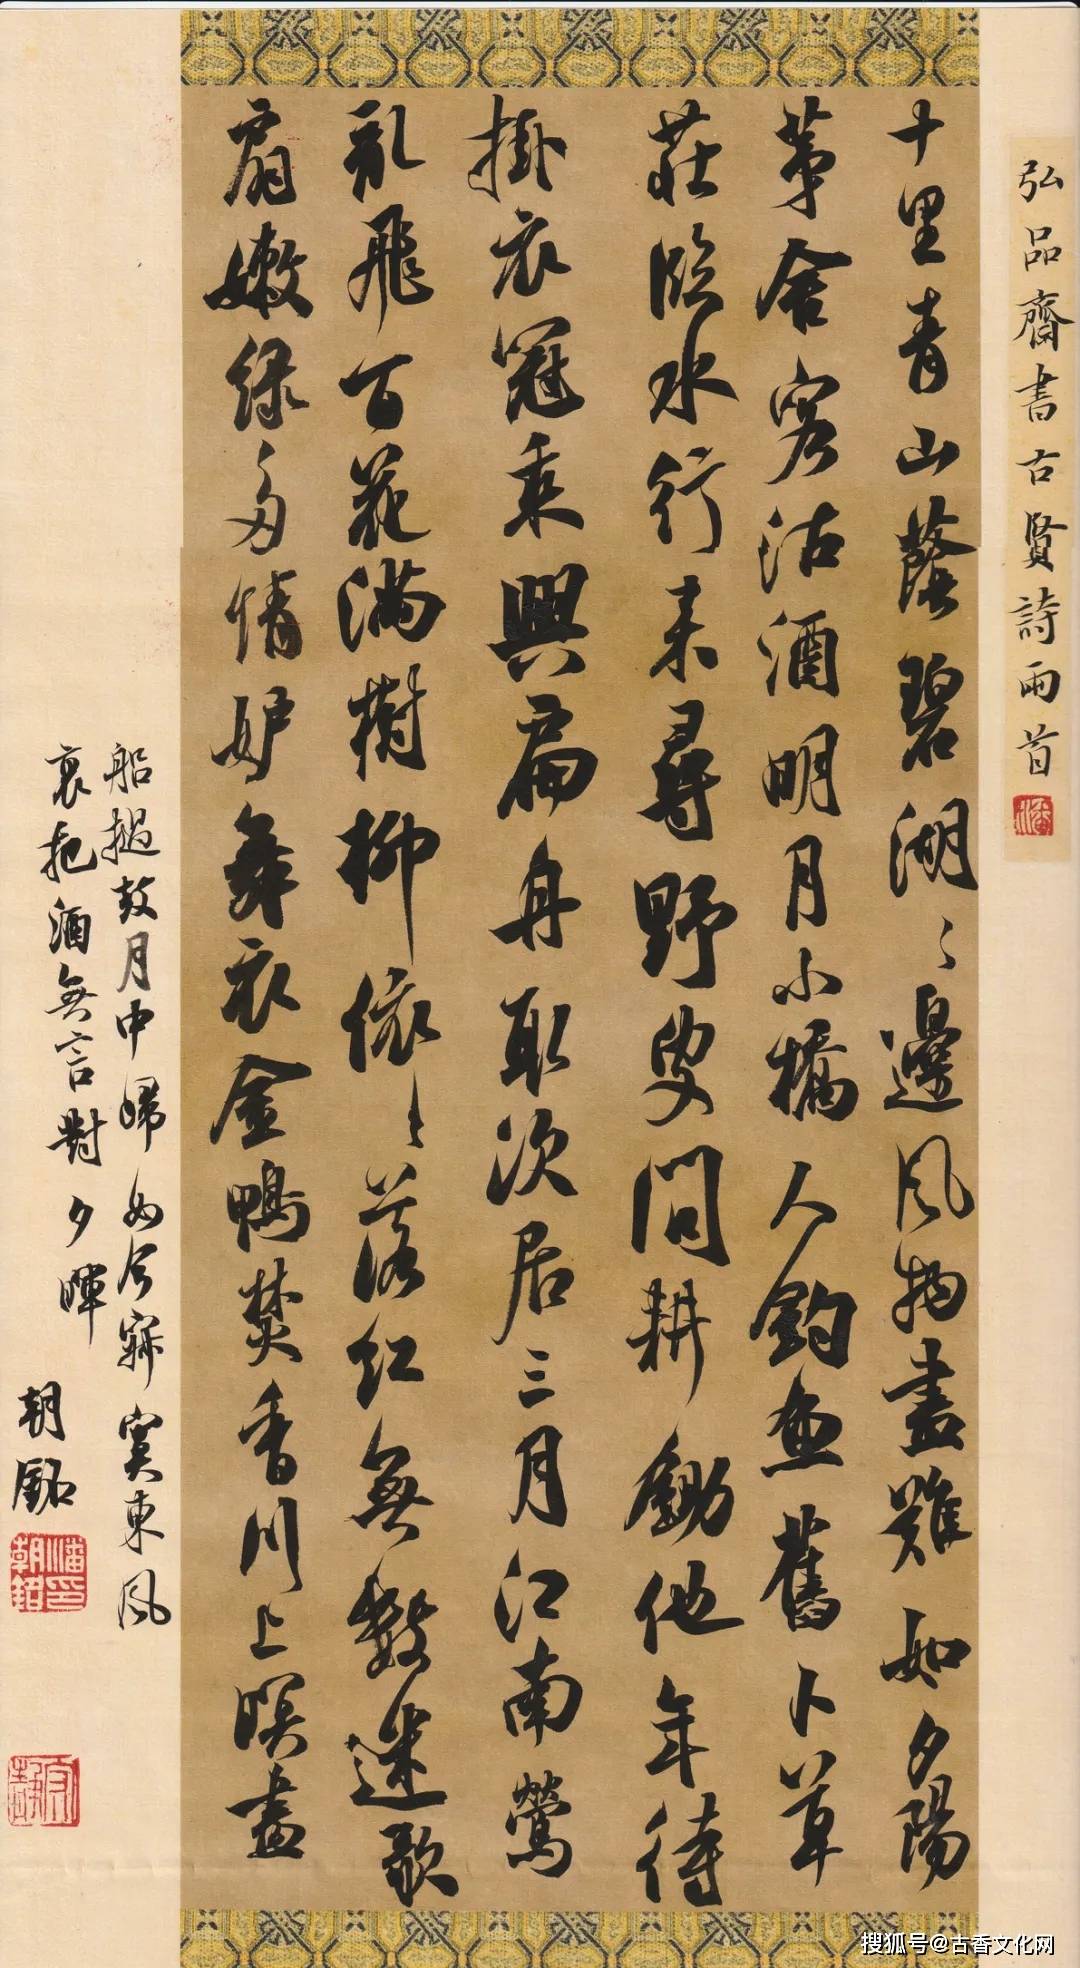 弘品齋書古賢詩兩首
潘
十里青山蔭碧湖〻邊風物畫難如夕陽
茅舍客沽酒明月小橋人釣魚舊卜草
莊臨水行来尋野叟問耕鋤他年待
掛衣冠乘興扁舟取次居三月江南鶯
亂飛百花滿樹柳依〻落紅無數迷歌
扇嫩綠多情妒舞衣金鴨焚香川上暝畫
船撾鼓月中歸如今寂寞東風
裏把酒無言對夕暉
朝銘
潘印朝銘
搜狐号@古香文化网